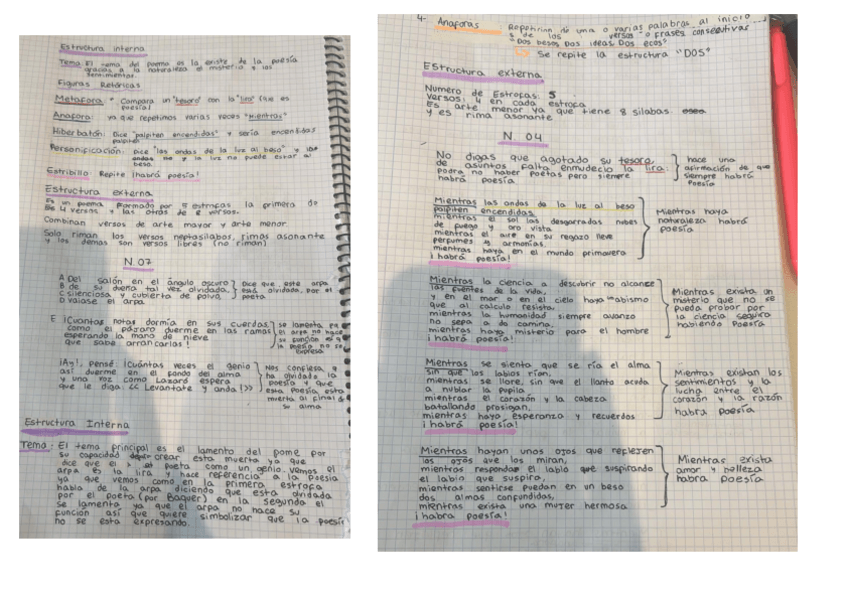 Estructura interna
Tema: El tema del poema es la existe de la poesía
gracias a la naturaleza el misterio y los
sentimientos.
Figuras Retóricas
Metafora: Compara un "tesoro" con la "lira" (que es
poesía)
Anafora: ya que repetimos varias veces "Mientras"
Hiberbatón: Dice "palpiten encendidas" y sería encendidas
palpiten
Personificación: Dice "las ondas de la luz al beso" y las
ondas y la luz no puede estar al
beso.
Estribillo: Repite ¡habrá poesía!
Estructura externa
Es un poema formado por 5 estrofas la primera de
4 versos y las otras de 8 versos.
Combinan versos de arte mayor y arte menor.
Solo riman los versos heptasilabos, rimas asonante
y los demas son versos libres (no riman)
N.07
A Del salón en el ángulo oscuro
B de su dueña tal vez olvidada,
C silenciosa y cubierta de polvo,
D veiase el arpa
Dice que este arpa
está olvidada, por el
poeta
E ¡Cuantas notas dormía en sus cuerdas
como el pájaro duerme en las ramas
esperando la mano de nieve
que sabe arrancarlas!
se lamenta
el arpa no hace
su función
la poesía no se
expresa
¡Ay!, pensé: ¡Cuántas veces el genio
así duerme en el fondo del alma
y una voz como Lázaro espera
que le diga: << Levantate y anda!>>
Nos confiesa
ha olvidado la
poesía y que
esta poesía esta
muerta al final
su alma
Estructura Interna
Tema: El tema principal es el lamento del pome por
su capacidad crear esta muerta ya que
dice que el poeta como un genio. Vemos el
arpa es la lira y hace referencia a la poesía
ya que vemos como en la primera estrofa
habla de la arpa diciendo que esta olvidada
por el poeta (por Baquer) en la segunda el
se lamenta ya que el arpa no hace su
función así que quiere simbolizar que la poesía
no se esta expresando.
4- Anaforas Repetirían de una o varias palabras al inicio
de los versos o frases consecutivas
"Dos besos Dos ideas Dos ecos"
Se repite la estructura "DOS"
Estructura externa
Numero de Estrofas: 5
Versos: 4 en cada estrofa
Es arte menor ya que tiene 8 silabas
y es rima asonante
N. 04
No digas que agotado su tesoro,
de asuntos falta enmudecio la lira:
podra no haber poetas pero siempre
habrá poesía
hace una
afirmación de que
siempre habrá
poesía
Mientras las ondas de la luz al beso
palpiten encendidas
mientras el sol las desgarradas nubes
de fuego y oro vista
mientras el aire en su regazo lleve
perfumes y armonías.
mientras haya en el mundo primavera
¡habrá poesía!
Mientras haya
naturaleza habrá
poesía
Mientras la ciencia a descubrir no alcance
las fuentes de la vida,
y en el mar o en el cielo haya abismo
que al calculo resista,
mientras la humanidad siempre avanzo
no sepa a do camina,
mientras haya misterio para el hombre
¡habrá poesía!
Mientras exista un
misterio que no se
pueda probar por
la ciencia seguira
habiendo Poesía
Mientras se sienta que se ría el alma
sin que los labios rían,
mientras se llore, sin que el llanto acuda
a nublar la pupila
mientras el corazón y la cabeza
batallando prosigan,
mientras haya esperanza y recuerdos
¡habrá poesía!
Mientras existan los
sentimientos y la
lucha entre el
corazón y la razón
habra poesía
Mientras hayan unos ojos que reflejen
los ojos que los miran,
mientras responda el labio que suspirando
el labio que suspira,
mientras sentirse puedan en un beso
dos almas confundidas,
mientras exista una mujer hermosa
¡habra poesía!
Mientras exista
amor y belleza
habra poesía